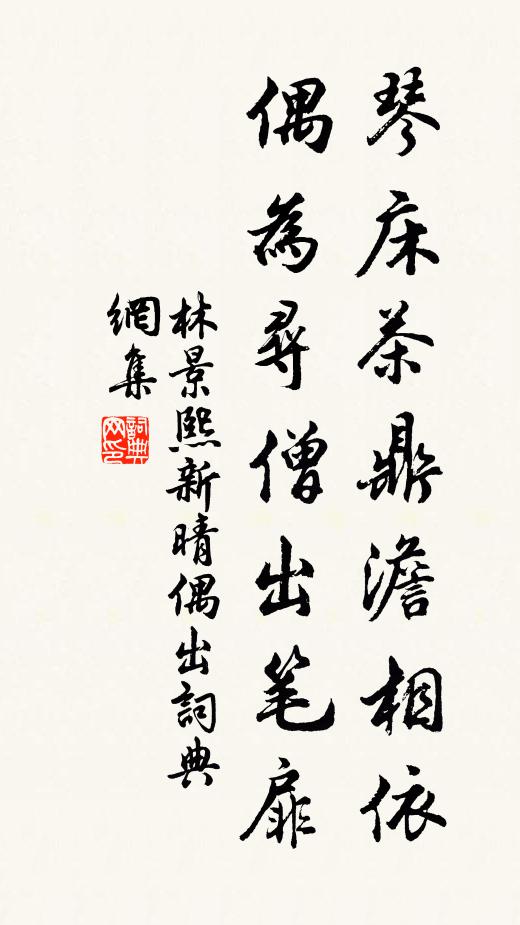 琴床茶鼎澹相依
偶為尋僧出笔扉
林景熙新晴偶出詞典
網集
詞典
网印